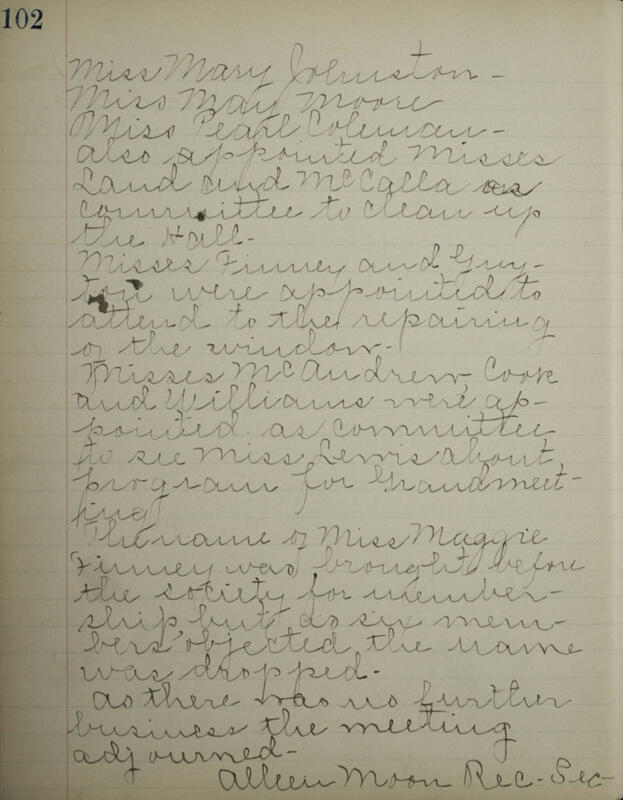 102
Miss Mary Johnston -
Miss May Moore
Miss Pearl Coleman -
also appointed Misses
Land and McCalla as
committee to clean up
the Hall -
Misses Finney and Guy-
ton were appointed to
attend to the repairing
of the window -
Misses McAndrew, Cook
and Williams were ap-
pointed as committee
to see Miss Lewis about
program for Grand meet-
ing
The name of Miss Maggie
Finney was brought before
the society for member-
ship but as six mem-
bers objected the name
was dropped -
as there was no further
business the meeting
adjourned -
Alleen Moon Rec - Sec -